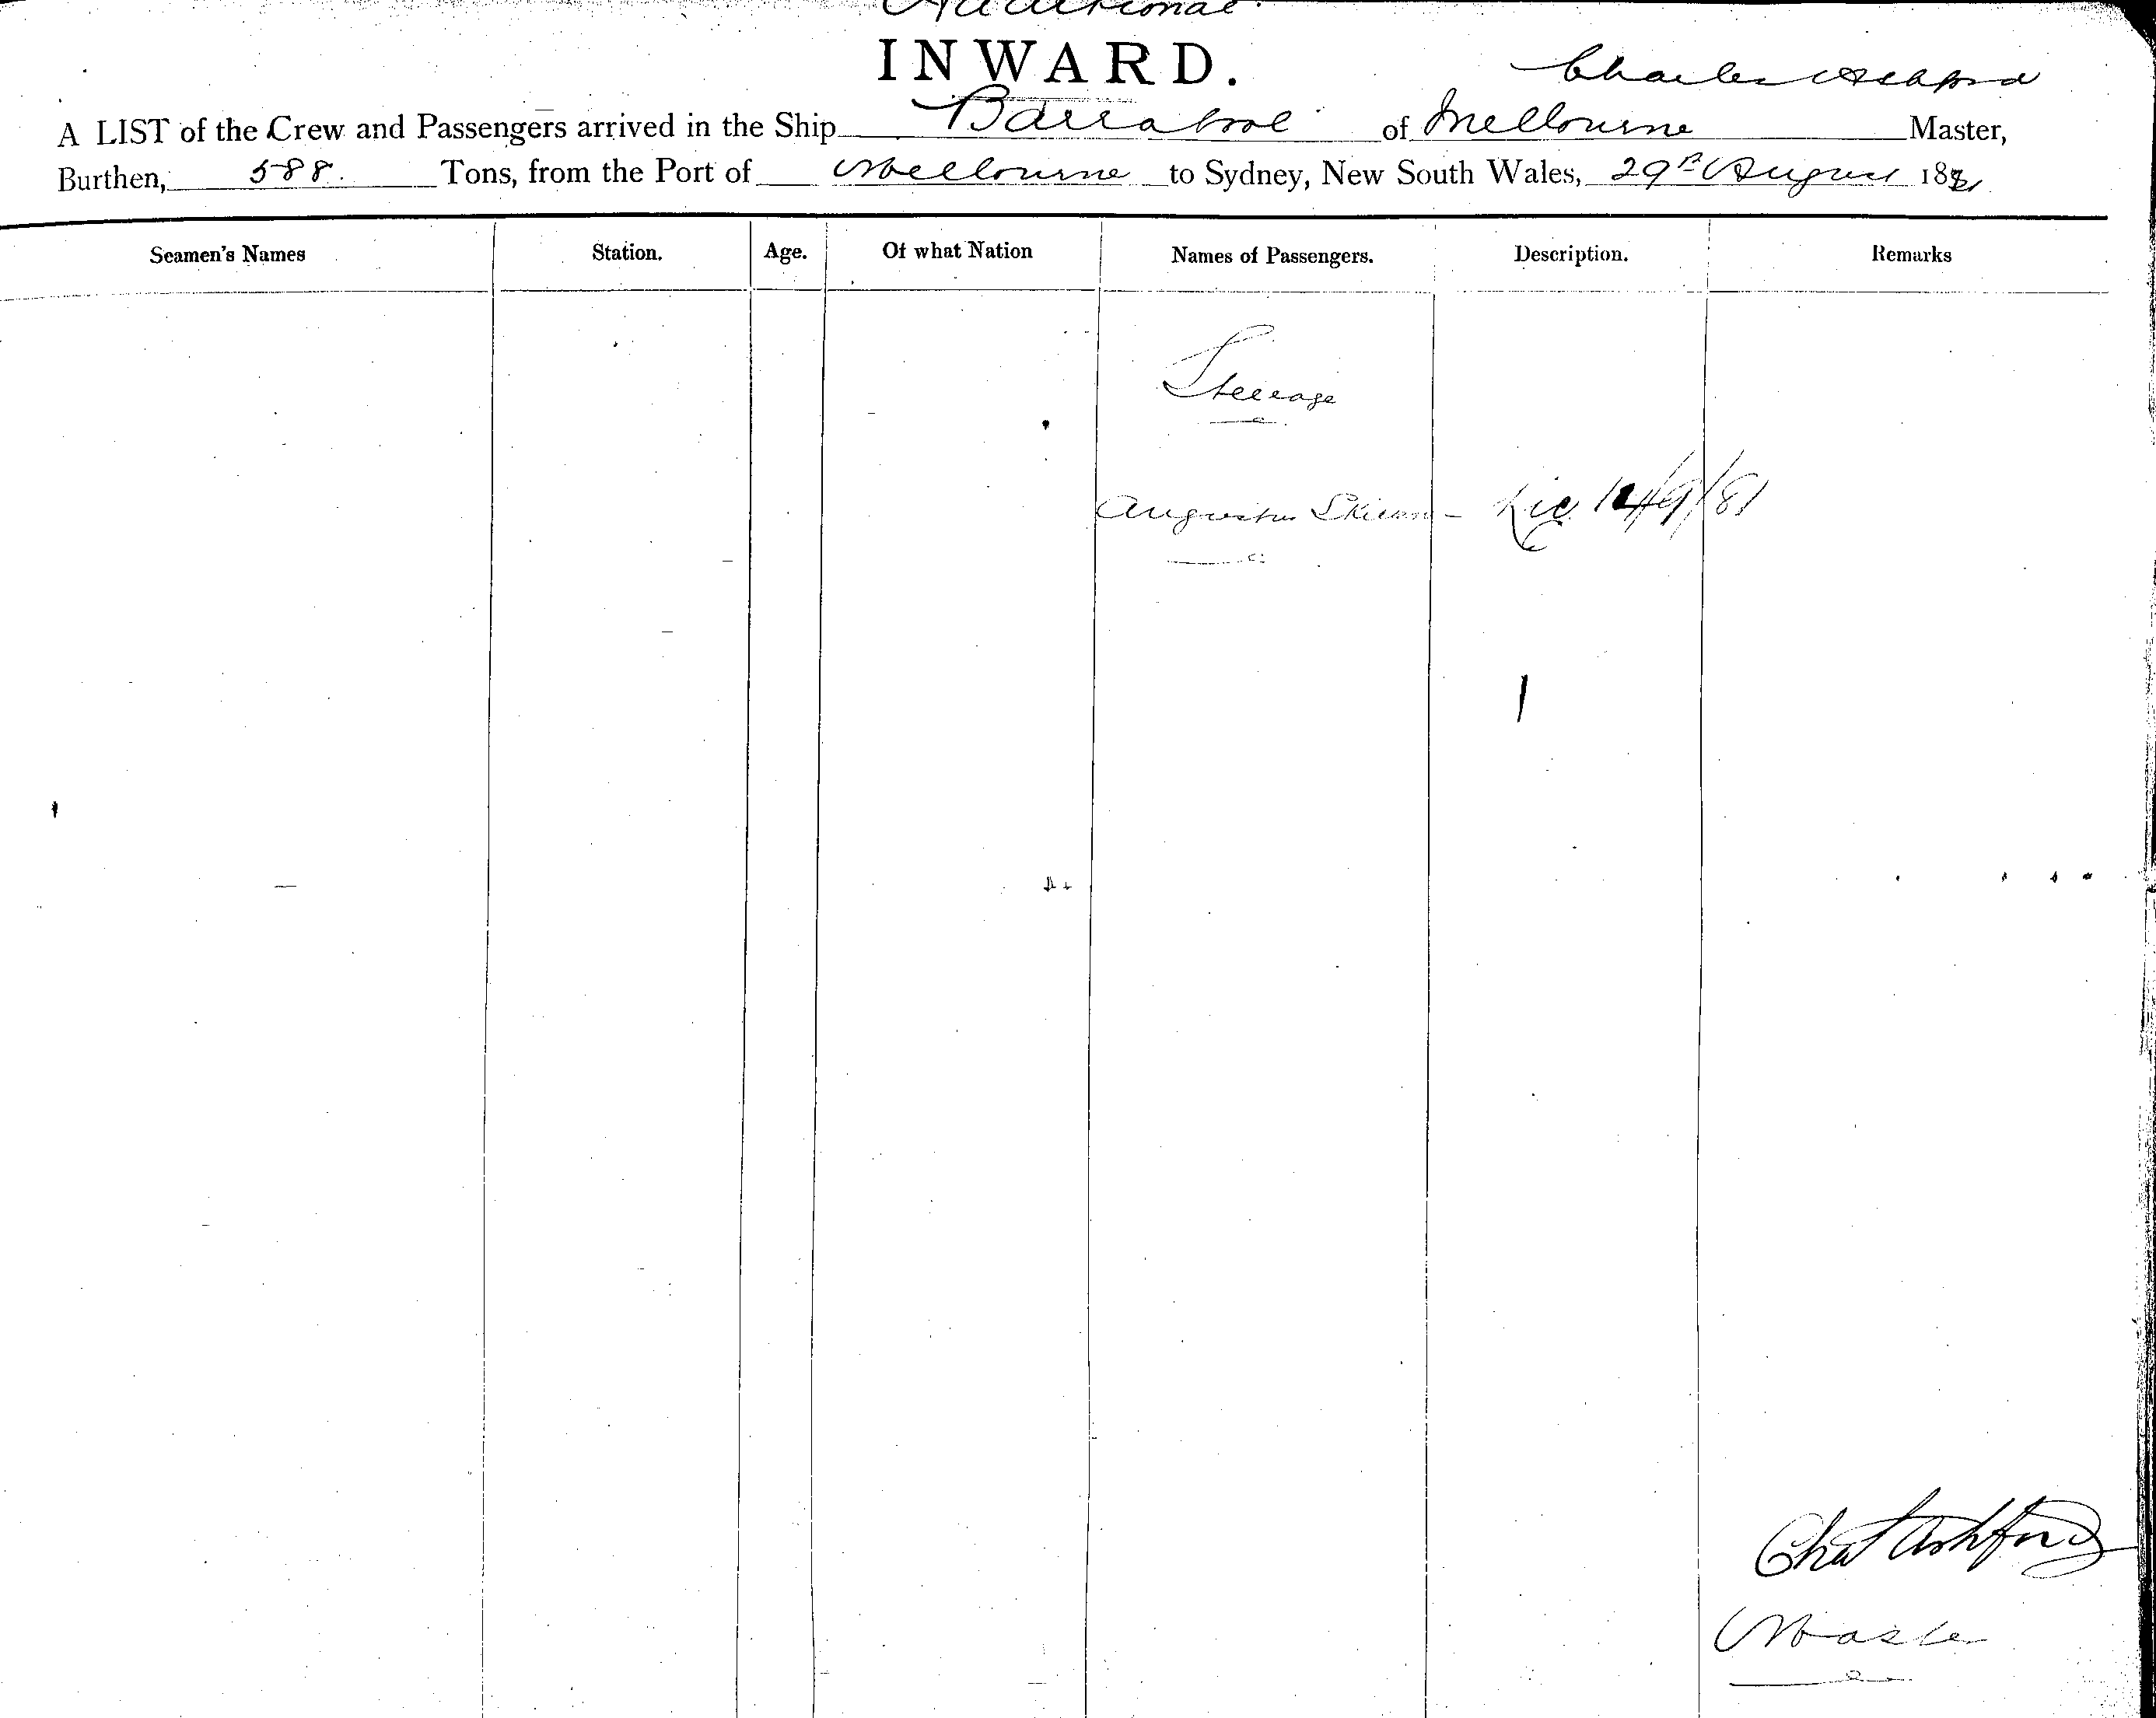 Additional
INWARD.
Charles Ashford
A LIST of the Crew and Passengers arrived in the Ship Barrabool of Melbourne Master,
Burthen, 588. Tons, from the Port of Melbourne to Sydney, New South Wales, 29th August 1881
Seamen's Names Station. Age. Of what Nation Names of Passengers. Description. Remarks
Steerage
Augustus - 9/81
Chas Ashford
Master